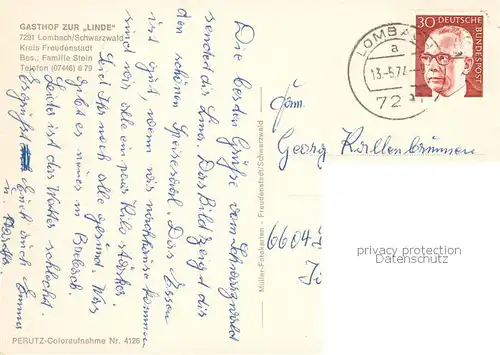 GASTHOF ZUR „LINDE"
7291 Lombach/Schwarzwald
Kreis Freudenstadt
Bes.: Familie Stein
Telefon (07446) 6 79
Die besten Grüße vom Schwarzwald
sendet dir Emma. Das Bild zeigt dir
den schönen Speisesaal. Das Essen
ist gut, wenn wir nachhause kommen
sind wir alle ein paar Kilo stärker.
Seid Ihr noch alle gesund. Was
gibt es neues in
Leider ist das Wetter schlecht.
Es grüßt Euch auch Emma
u.
PERUTZ-Coloraufnahme Nr. 4126
Müller-Fotokarten - Freudenstadt/Schwarzwald
LOMBACH
a
13.-5.74.--
72
30 DEUTSCHE
BUNDESPOST
Fam.
Georg Kallenbrunnen
6604
privacy protection
Datenschutz